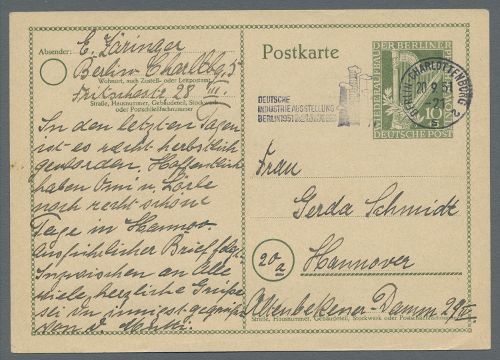 Absender: E. Zäringer
Berlin-Charlbg. 5
Wohnort, auch Zustell- oder Leitpostamt
Fritschestr. 28 III.
Straße, Hausnummer, Gebäudeteil, Stockwerk
oder Postschließfachnummer
In den letzten Tagen
ist es recht herbstlich
geworden. Hoffentlich
haben Omi u.
noch recht schöne
Tage in Hannov.
Ausführlicher Brief folgt.
Inzwischen an Alle
viele herzliche Grüße
sei du innigst gegrüßt
von d. Mutti.
Postkarte
DEUTSCHE
INDUSTRIE AUSSTELLUNG
BERLIN 1951
BERLIN-CHARLOTTENBURG 2
20.9.51
-21
WIEDERAUFBAU DER BERLINER
10
DEUTSCHE POST
Frau
Gerda Schmidt
20a
Hannover
Altenbekener-Damm
Straße, Hausnummer, Gebäudeteil, Stockwerk oder Postschließfachnummer